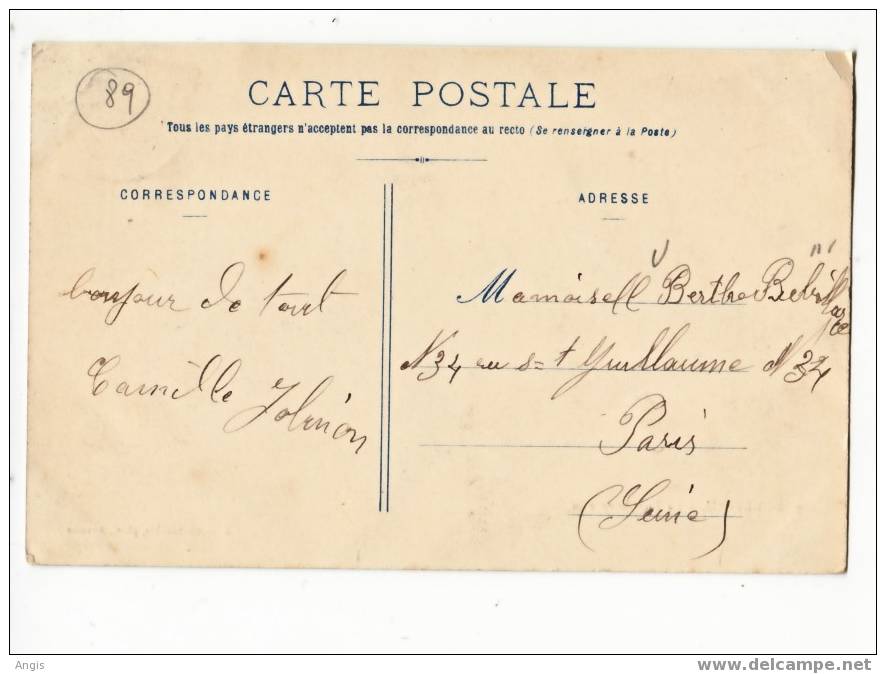 89
CARTE POSTALE
Tous les pays étrangers n'acceptent pas la correspondance au recto (Se renseigner à la Poste)
CORRESPONDANCE
bonjour de tout
Camille
ADRESSE
Mamoisell Berthe
N34 ru s=t Guillaume N34
Paris
(Seine)
Angis
www.delcampe.net